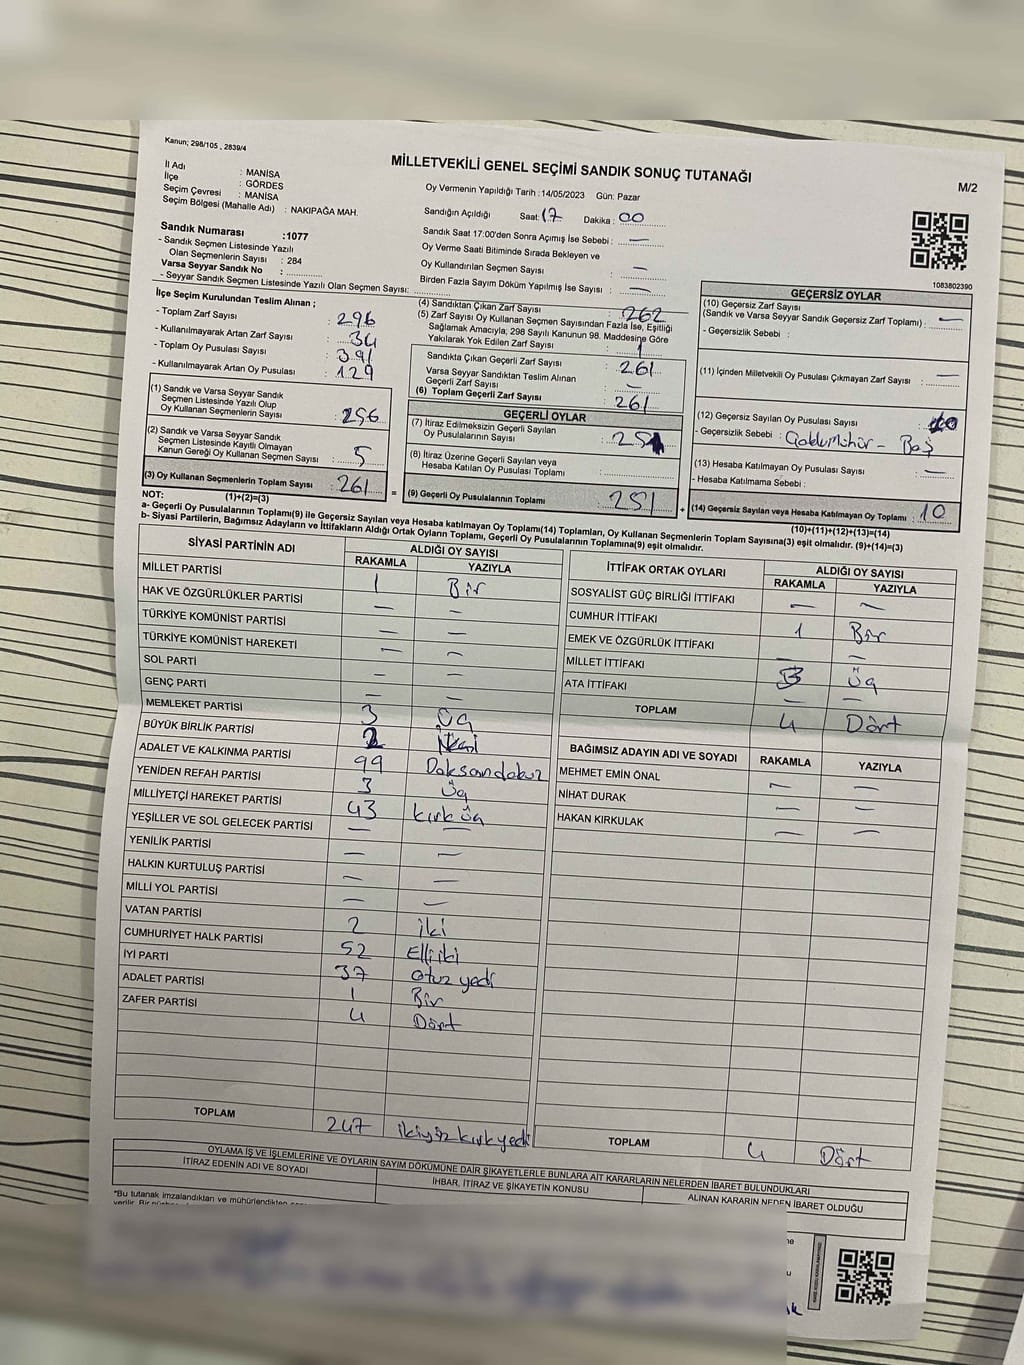 Kanun; 298/105 , 2839/4
MİLLETVEKİLİ GENEL SEÇİMİ SANDIK SONUÇ TUTANAĞI
M/2
İl Adı : MANİSA
İlçe : GÖRDES
Seçim Çevresi : MANİSA
Seçim Bölgesi (Mahalle Adı) : NAKIPAĞA MAH.
Sandık Numarası :1077
- Sandık Seçmen Listesinde Yazılı
Olan Seçmenlerin Sayısı : 284
Varsa Seyyar Sandık No :
- Seyyar Sandık Seçmen Listesinde Yazılı Olan Seçmen Sayısı:
Oy Vermenin Yapıldığı Tarih :14/05/2023 Gün: Pazar
Sandığın Açıldığı Saat: 17 Dakika : 00
Sandık Saat 17:00'den Sonra Açımış İse Sebebi : —
Oy Verme Saati Bitiminde Sırada Bekleyen ve
Oy Kullandırılan Seçmen Sayısı : —
Birden Fazla Sayım Döküm Yapılmış İse Sayısı : —
1083802390
İlçe Seçim Kurulundan Teslim Alınan ;
- Toplam Zarf Sayısı : 296
- Kullanılmayarak Artan Zarf Sayısı : 34
- Toplam Oy Pusulası Sayısı : 391
- Kullanılmayarak Artan Oy Pusulası : 129
(1) Sandık ve Varsa Seyyar Sandık
Seçmen Listesinde Yazılı Olup
Oy Kullanan Seçmenlerin Sayısı : 256
(2) Sandık ve Varsa Seyyar Sandık
Seçmen Listesinde Kayıtlı Olmayan
Kanun Gereği Oy Kullanan Seçmen Sayısı : 5
(3) Oy Kullanan Seçmenlerin Toplam Sayısı : 261
(1)+(2)=(3)
(4) Sandıktan Çıkan Zarf Sayısı : 262
(5) Zarf Sayısı Oy Kullanan Seçmen Sayısından Fazla İse, Eşitliği
Sağlamak Amacıyla; 298 Sayılı Kanunun 98. Maddesine Göre
Yakılarak Yok Edilen Zarf Sayısı : 1
Sandıkta Çıkan Geçerli Zarf Sayısı : 261
Varsa Seyyar Sandıktan Teslim Alınan
Geçerli Zarf Sayısı : —
(6) Toplam Geçerli Zarf Sayısı : 261
GEÇERLİ OYLAR
(7) İtiraz Edilmeksizin Geçerli Sayılan
Oy Pusulalarının Sayısı : 251
(8) İtiraz Üzerine Geçerli Sayılan veya
Hesaba Katılan Oy Pusulası Toplamı :
= (9) Geçerli Oy Pusulalarının Toplamı : 251
GEÇERSİZ OYLAR
(10) Geçersiz Zarf Sayısı
(Sandık ve Varsa Seyyar Sandık Geçersiz Zarf Toplamı) : —
- Geçersizlik Sebebi :
(11) İçinden Milletvekili Oy Pusulası Çıkmayan Zarf Sayısı : —
(12) Geçersiz Sayılan Oy Pusulası Sayısı : 10
- Geçersizlik Sebebi : Çoklu Mühür - Boş
(13) Hesaba Katılmayan Oy Pusulası Sayısı : —
- Hesaba Katılmama Sebebi :
+ (14) Geçersiz Sayılan veya Hesaba Katılmayan Oy Toplamı : 10
(10)+(11)+(12)+(13)=(14)
NOT:
a- Geçerli Oy Pusulalarının Toplamı(9) ile Geçersiz Sayılan veya Hesaba katılmayan Oy Toplamı(14) Toplamları, Oy Kullanan Seçmenlerin Toplam Sayısına(3) eşit olmalıdır. (9)+(14)=(3)
b- Siyasi Partilerin, Bağımsız Adayların ve İttifakların Aldığı Ortak Oyların Toplamı, Geçerli Oy Pusulalarının Toplamına(9) eşit olmalıdır.
SİYASİ PARTİNİN ADI ALDIĞI OY SAYISI
RAKAMLA YAZIYLA
MİLLET PARTİSİ 1 Bir
HAK VE ÖZGÜRLÜKLER PARTİSİ — —
TÜRKİYE KOMÜNİST PARTİSİ — —
TÜRKİYE KOMÜNİST HAREKETİ — —
SOL PARTİ — —
GENÇ PARTİ — —
MEMLEKET PARTİSİ 3 Üç
BÜYÜK BİRLİK PARTİSİ 2 İki
ADALET VE KALKINMA PARTİSİ 99 Doksandokuz
YENİDEN REFAH PARTİSİ 3 Üç
MİLLİYETÇİ HAREKET PARTİSİ 43 kırk üç
YEŞİLLER VE SOL GELECEK PARTİSİ — —
YENİLİK PARTİSİ — —
HALKIN KURTULUŞ PARTİSİ — —
MİLLİ YOL PARTİSİ — —
VATAN PARTİSİ 2 iki
CUMHURİYET HALK PARTİSİ 52 Elli iki
İYİ PARTİ 37 otuz yedi
ADALET PARTİSİ 1 Bir
ZAFER PARTİSİ 4 Dört
TOPLAM 247 ikiyüz kırk yedi
İTTİFAK ORTAK OYLARI ALDIĞI OY SAYISI
RAKAMLA YAZIYLA
SOSYALİST GÜÇ BİRLİĞİ İTTİFAKI — —
CUMHUR İTTİFAKI 1 Bir
EMEK VE ÖZGÜRLÜK İTTİFAKI — —
MİLLET İTTİFAKI 3 üç
ATA İTTİFAKI — —
TOPLAM 4 Dört
BAĞIMSIZ ADAYIN ADI VE SOYADI RAKAMLA YAZIYLA
MEHMET EMİN ÖNAL — —
NİHAT DURAK — —
HAKAN KIRKULAK — —
TOPLAM 4 Dört
OYLAMA İŞ VE İŞLEMLERİNE VE OYLARIN SAYIM DÖKÜMÜNE DAİR ŞİKAYETLERLE BUNLARA AİT KARARLARIN NELERDEN İBARET BULUNDUKLARI
İTİRAZ EDENİN ADI VE SOYADI İHBAR, İTİRAZ VE ŞİKAYETİN KONUSU ALINAN KARARIN NEDEN İBARET OLDUĞU
*Bu tutanak imzalandıktan ve mühürlendikten